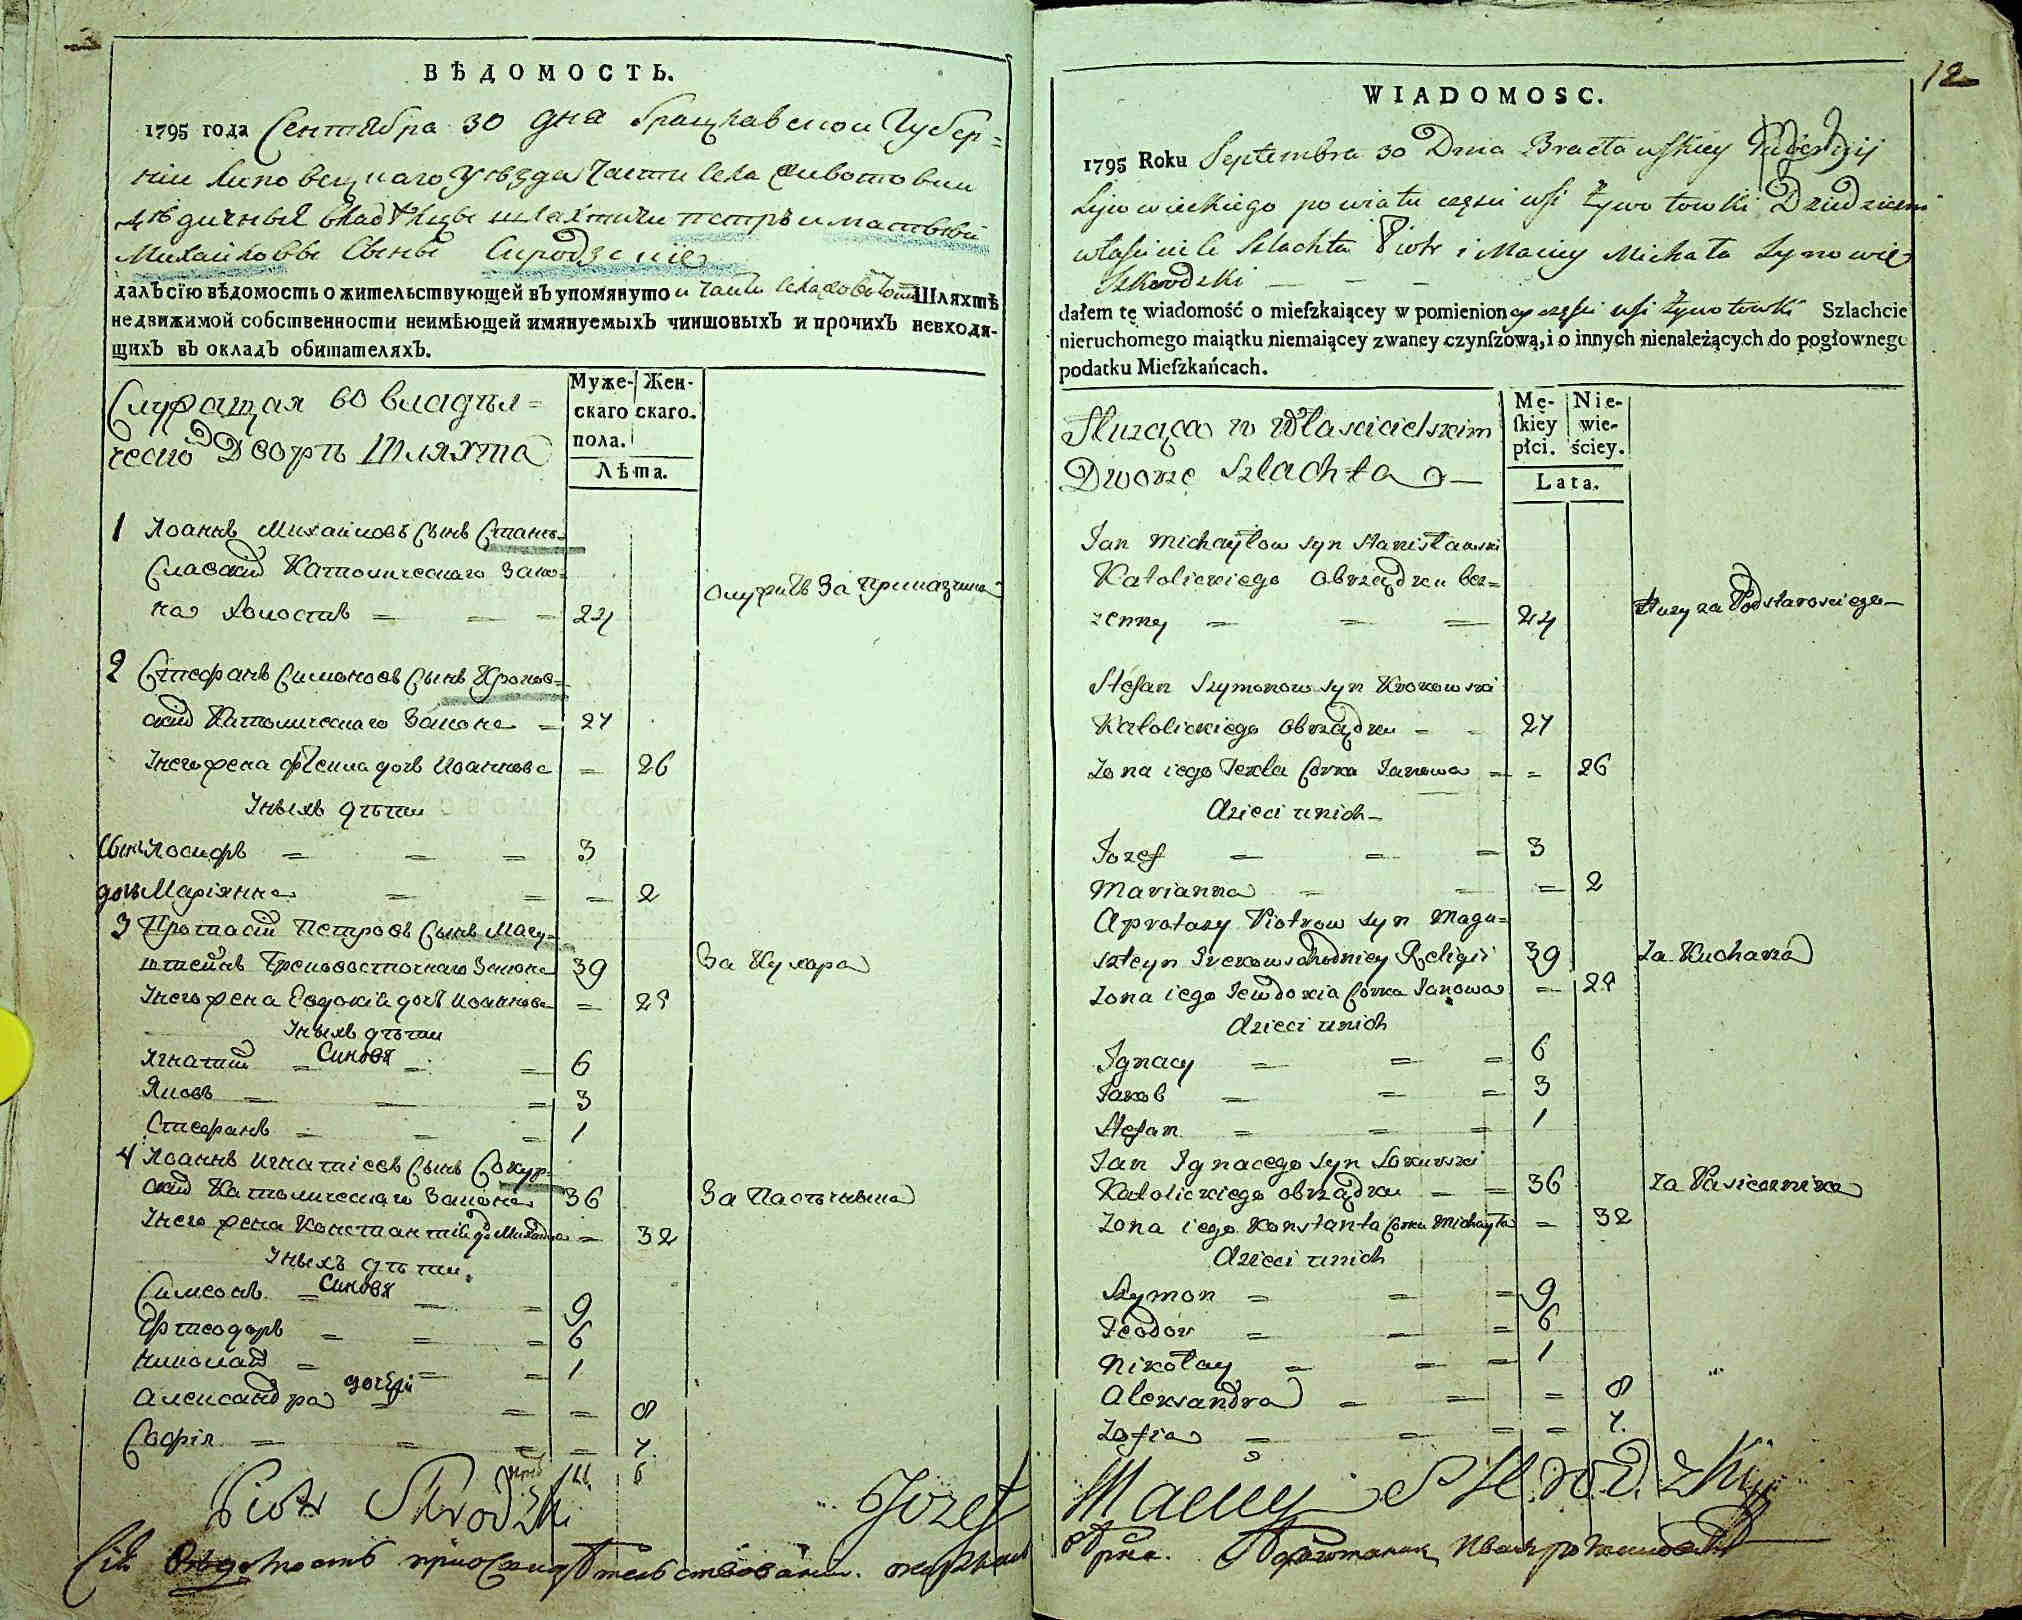 ВѢДОМОСТЬ.
1795 года Сентября 30 дня Брацлавской Губер=
нии Липовецкаго Уѣзда Части Села Животовки
дѣдичные владѣльцы шляхтичи Петръ и Матвѣй
Михайловы Сыны Скродзскіе
далЪ сїю вѣдомость о жительствующей вЪ упомянутой Части Села Животовки Шляхтѣ
недвижимой собственности неимѣющей имянуемыхЪ чиншовыхЪ и прочихЪ невходя-
щихЪ вЪ окладЪ обитателяхЪ.
Служащая во владѣл=
ческо Дворѣ Шляхта
Муже-
скаго
пола.
Жен-
скаго.
Лѣта.
1 Иоаннъ Михайловъ Сынъ Стани=
славскій Католическаго Зако=
на Холостъ = = = 24
служитъ За Приказчика
2 Стефанъ Симоновъ Сынъ Кроков=
скій Католическаго Закона = 27
У него жена Фекла дочь Иоаннова = 26
У нихъ дѣти
Сынъ Иосифъ = = = 3
дочь Маріянна = = = 2
3 Протасій Петровъ Сынъ Магу=
штейнъ Грековосточнаго Закона 39
За Кухара
У него жена Евдокія дочь Иоаннова = 28
У нихъ дѣти
Синовя
Игнатій = = = 6
Яковъ = = = 3
Стефанъ = = = 1
4 Иоаннъ Игнатіевъ Сынъ Сокур=
скій Католическаго Закона 36
За Пасѣчника
У него жена Константія до Михайла = 32
У нихъ дѣти
Синовя
Симеонъ = = = 9
Фтеодоръ = = = 6
Николай = = = 1
дочери
Александра = = = 8
Софія = = = 7
Piotr Skrodzki Jozef
12
WIADOMOSC.
1795 Roku Septembra 30 Dnia Bracławskiey Gubernij
Lipowieckiego powiatu części wsi Żywotowki Dziedziczni
właściciele Szlachta Piotr i Maciey Michała Synowie
Skrodzki — — —
dałem tę wiadomość o mieſzkaiącey w pomienioney części wsi Żywotowki Szlachcie
nieruchomego maiątku niemaiącey zwaney czynſzową, i o innych nienależących do pogłownego
podatku Mieſzkańcach.
Służąca w Właścicielskim
Dworze Szlachta —
Mę-
ſkiey
płci.
Nie-
wie-
ściey.
Lata.
Jan Michayłow syn Stanisławski
Katolickiego obrządku bez=
żenny = = = 24
służy za Podstarosciego
Stefan Szymonow syn Krokowski
Katolickiego obrządku - - 27
Żona iego Tekla Corka Janowa = = 26
Dzieci u nich —
Jozef = = = 3
Marianna = = = 2
Aprotazy Piotrow syn Magu=
sztcyn Grekowschodniey Religii 39
za Kucharza
Żona iego Jewdokia Corka Janowa = 28
Dzieci u nich
Ignacy = = = 6
Jakob = = = 3
Stefan = = = 1
Jan Ignacego syn Sokurski
Katolickiego obrządku = = 36
za Pasiecznika
Żona iego Konstanta Corka Michayła = 32
Dzieci u nich
Szymon = = = 9
Teodor = = = 6
Nikołay = = = 1
Aleksandra = = = 8
Zofia = = = = 7.
Maciey Skrodzki